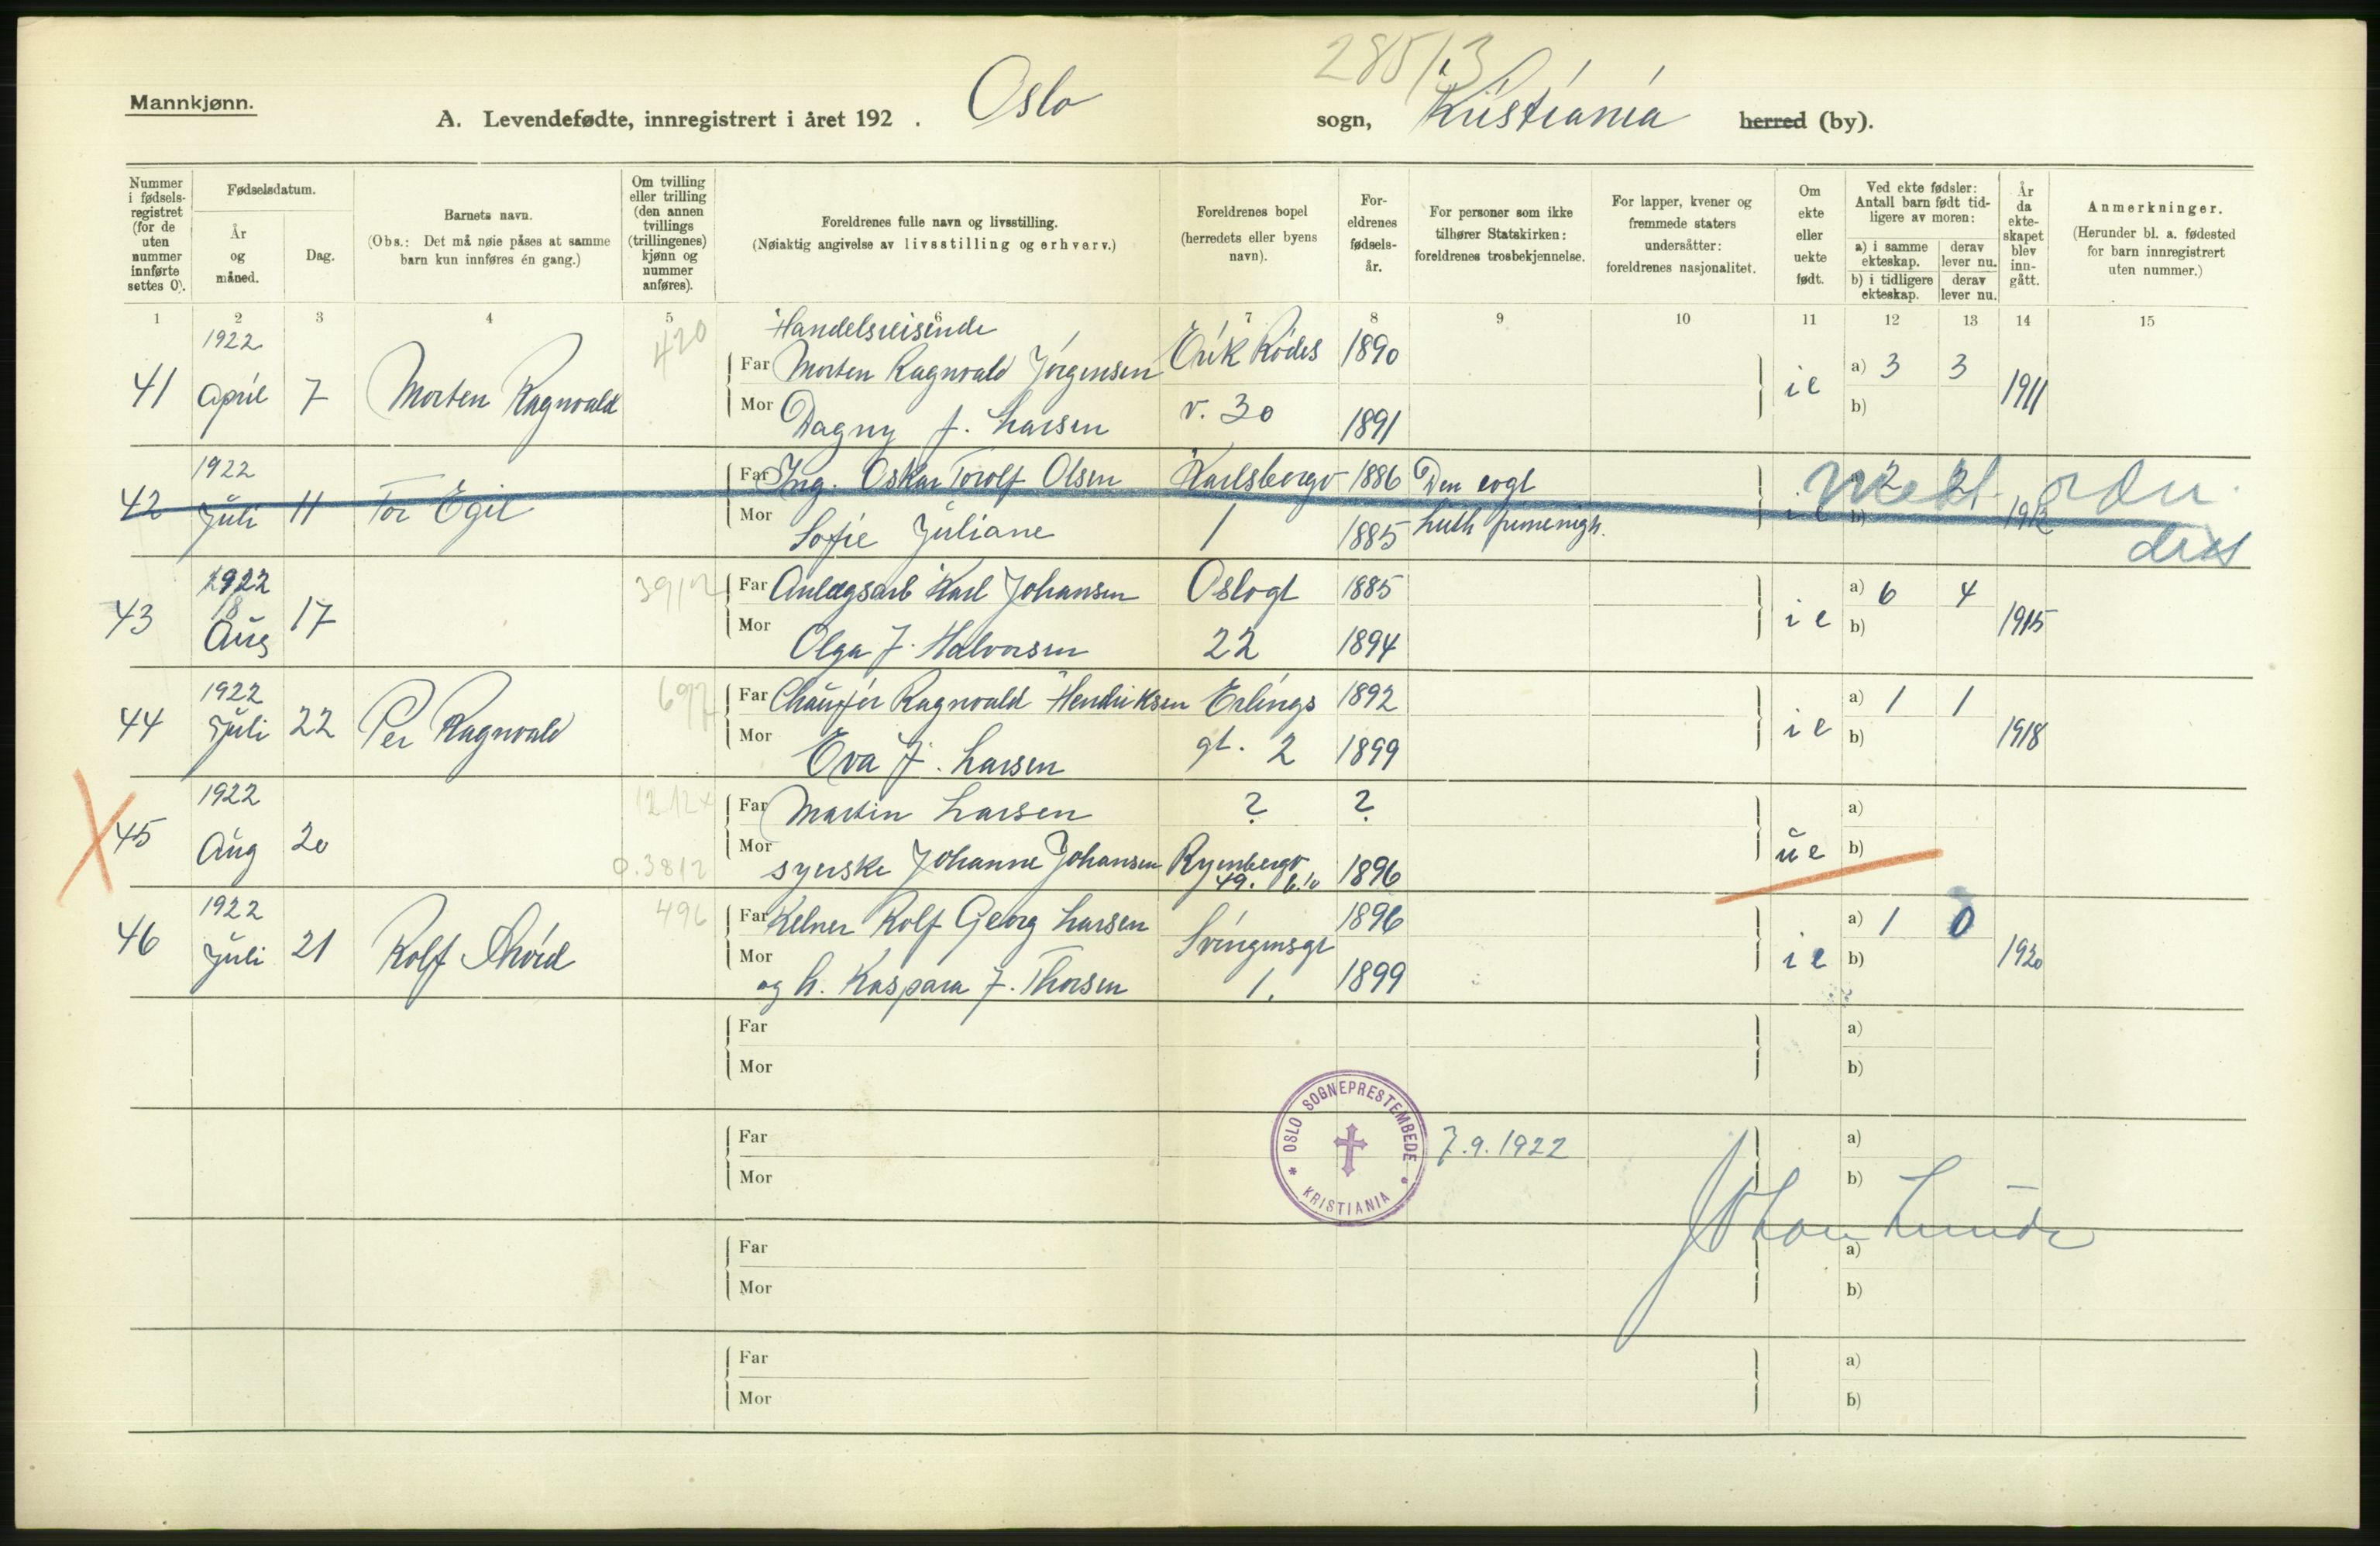 285/3
Mannkjønn.
A. Levendefødte, innregistrert i året 192 . Oslo sogn, Kristiania herred (by).
Nummer i fødsels-registret (for de uten nummer innførte settes 0).
Fødselsdatum.
År og måned.
Dag.
Barnets navn.
(Obs.: Det må nøie påses at samme barn kun innføres én gang.)
Om tvilling eller trilling (den annen tvillings (trillingenes) kjønn og nummer anføres).
Foreldrenes fulle navn og livsstilling.
(Nøiaktig angivelse av livsstilling og erhverv.)
Foreldrenes bopel (herredets eller byens navn).
For-eldrenes fødsels-år.
For personer som ikke tilhører Statskirken: foreldrenes trosbekjennelse.
For lapper, kvener og fremmede staters undersåtter: foreldrenes nasjonalitet.
Om ekte eller uekte født.
Ved ekte fødsler: Antall barn født tid-ligere av moren:
a) i samme ekteskap. derav lever nu.
b) i tidligere ekteskap. derav lever nu.
År da ekte-skapet blev inn-gått.
Anmerkninger.
(Herunder bl. a. fødested for barn innregistrert uten nummer.)
1 2 3 4 5 6 7 8 9 10 11 12 13 14 15
1922 420 Handelsreisende
Far Morten Ragnvald Jørgensen Erik Rødes 1890 a) 3 3
41 April 7 Morten Ragnvald ie 1911
Mor Dagny f. Larsen v. 30 1891 b)
1922 Far Ing. Oskar Torolf Olsen Karlsborgv 1886 Den evgl 2 2
42 Juli 11 Tor Egil ie 1912
Mor Sofie Juliane 1 1885 Luth frimenigh. b)
1922 3912 Far Anlægsarb Karl Johansen Oslogt 1885 a) 6 4
43 18 Aug 17 ie 1915
Mor Olga f. Halvorsen 22 1894 b)
1922 Far Chaufför Ragnvald Hendriksen Erlings 1892 a) 1 1
44 Juli 22 Per Ragnvald ie 1918
Mor Eva f. Larsen gt. 2 1899 b)
1922 Far Martin Larsen ? ? a)
45 Aug 20 ue
0.3812 Mor syerske Johanne Johansen Ryenbergv 49. 1896 b)
1922 496 Far Kelner Rolf Georg Larsen Svingensgt 1896 a) 1 0
46 Juli 21 Rolf ie 1920
Mor og h. Kaspara f. Thorsen 1. 1899 b)
Far a)
Mor b)
Far a)
OSLO SOGNEPRESTEMBEDE
KRISTIANIA
7.9.1922
Mor b)
Johan Lunde
Far a)
Mor b)
Far a)
Mor b)